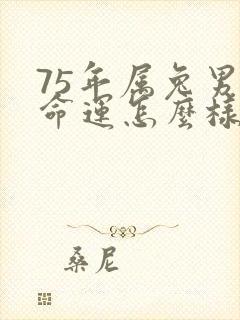 75年属兔男
命运怎麽樣
桑尼